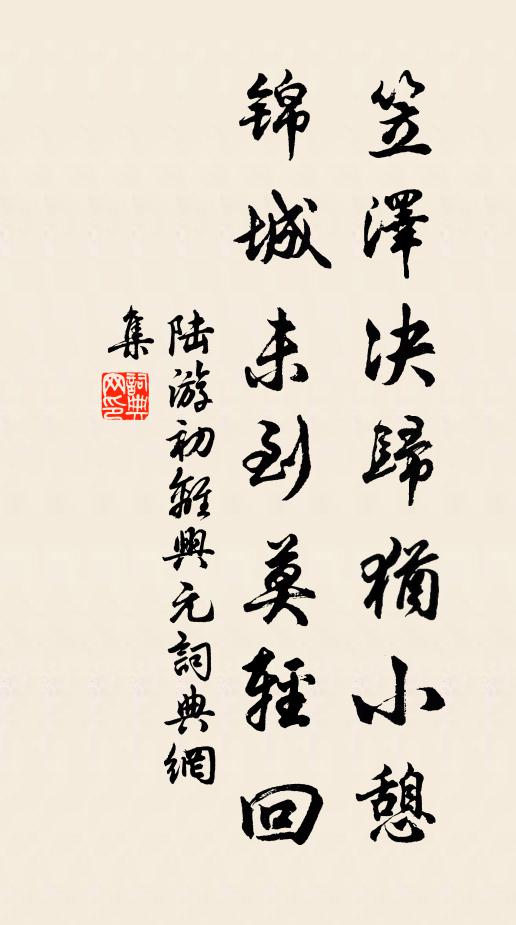 笠澤決歸猶小憩
錦城未到莫輕回
陆游初離興元詞典網
集
詞典網印